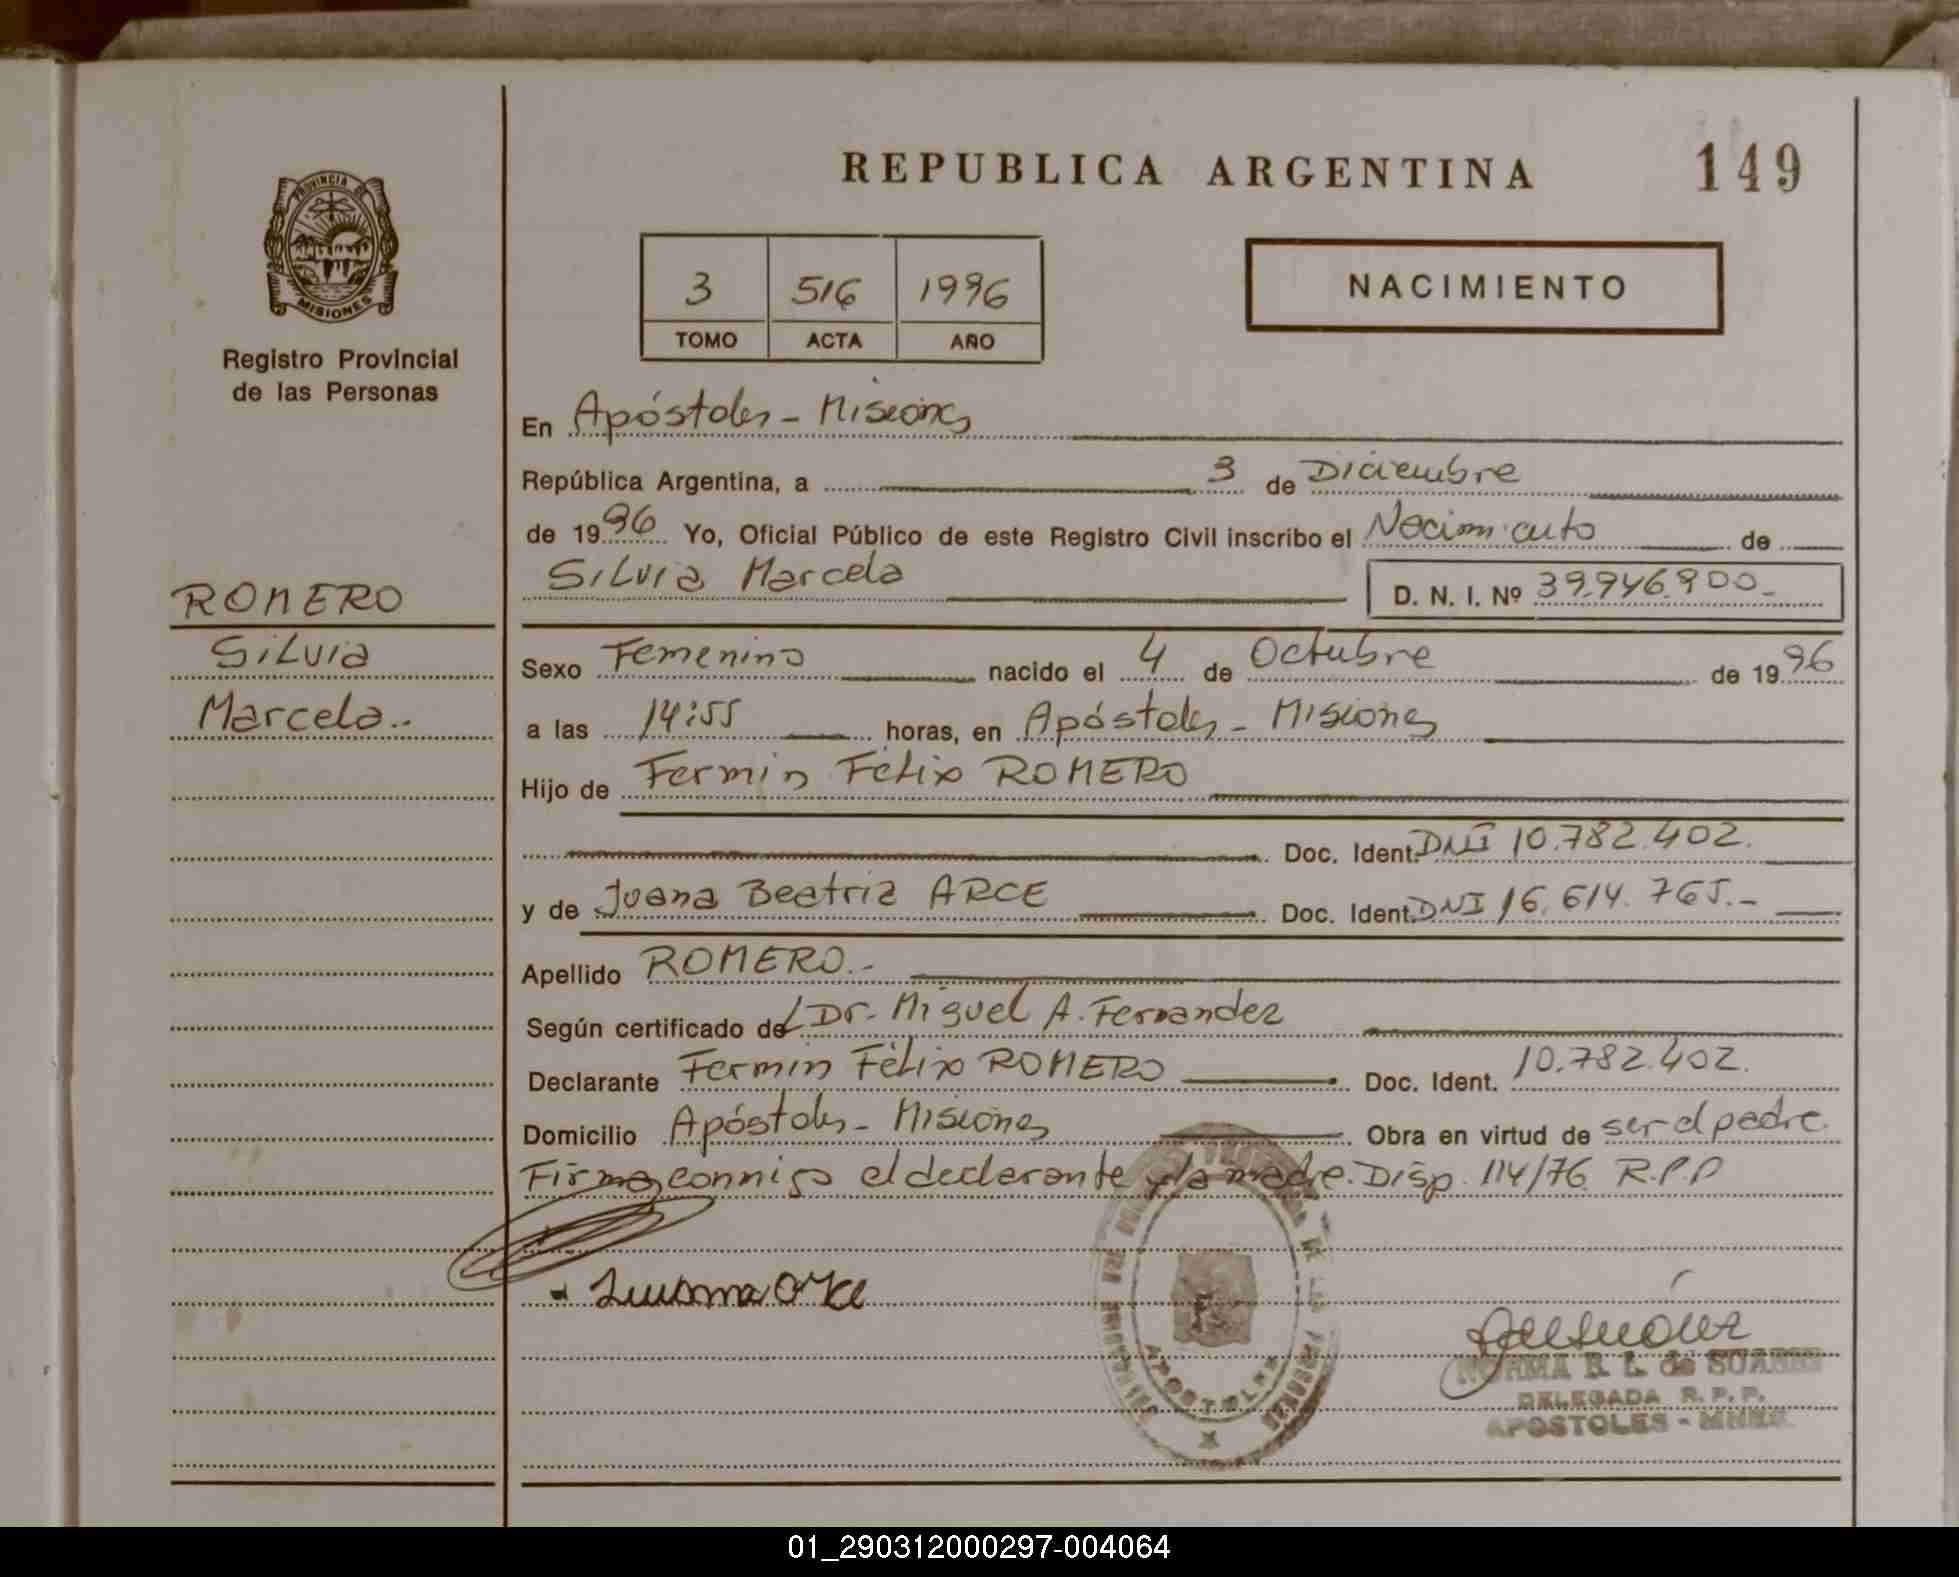 REPUBLICA ARGENTINA
149
PROVINCIA DE
MISIONES
Registro Provincial
de las Personas
3 516 1996
TOMO ACTA AÑO
NACIMIENTO
En Apóstoles - Misiones
República Argentina, a 3 de Diciembre
de 1996 Yo, Oficial Público de este Registro Civil inscribo el Nacimiento de
Silvia Marcela D. N. I. Nº 39.946.900.-
ROMERO
Silvia
Marcela..
Sexo Femenino nacido el 4 de Octubre de 1996
a las 14:55 horas, en Apóstoles - Misiones
Hijo de Fermin Félix ROMERO
Doc. Ident. DNI 10.782.402.
y de Juana Beatriz ARCE Doc. Ident. DNI 16.614.765.-
Apellido ROMERO.-
Según certificado de Dr. Miguel A. Fernandez
Declarante Fermin Félix ROMERO Doc. Ident. 10.782.402.
Domicilio Apóstoles - Misiones Obra en virtud de ser el padre.
Firma conmigo el declarante y la madre. Disp. 114/76 R.P.P
APOSTOLES
NORMA R. L. de SUAREZ
DELEGADA R. P. P.
APOSTOLES - MNES.
01_290312000297-004064